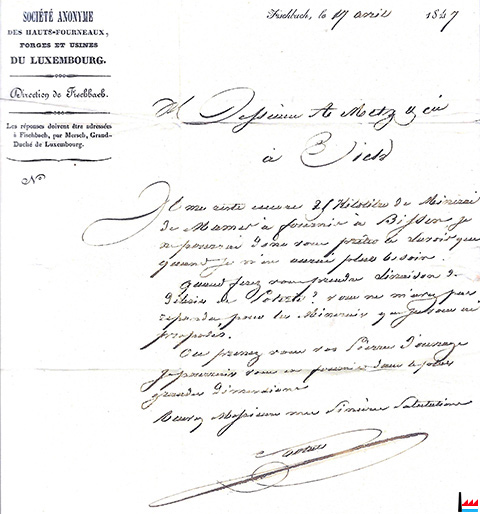 SOCIÉTÉ ANONYME
DES HAUTS-FOURNEAUX,
FORGES ET USINES
DU LUXEMBOURG.
Direction de Fischbach.
Les réponses doivent être adressées
à Fischbach, par Mersch, Grand-
Duché de Luxembourg.
N°
Fischbach, le 17 avril 1847
Messieurs A Metz & Cie
à Eich
Il me reste encore 25 Kilolitres de Minerai
de Mamer à fournir à Bissen, je
ne pourrai donc vous prêter le lavoir que
quand je n'en aurai plus besoin.
Quand ferez vous prendre livraison de
vous ne m'avez pas
répondu pour les Minerais que je vous ai
proposés.
Où prenez vous vos Pierres d'ouvrage
je pourrais vous en fournir dans les plus
grandes dimensions
Recevez Messieurs mes Sincères Salutations